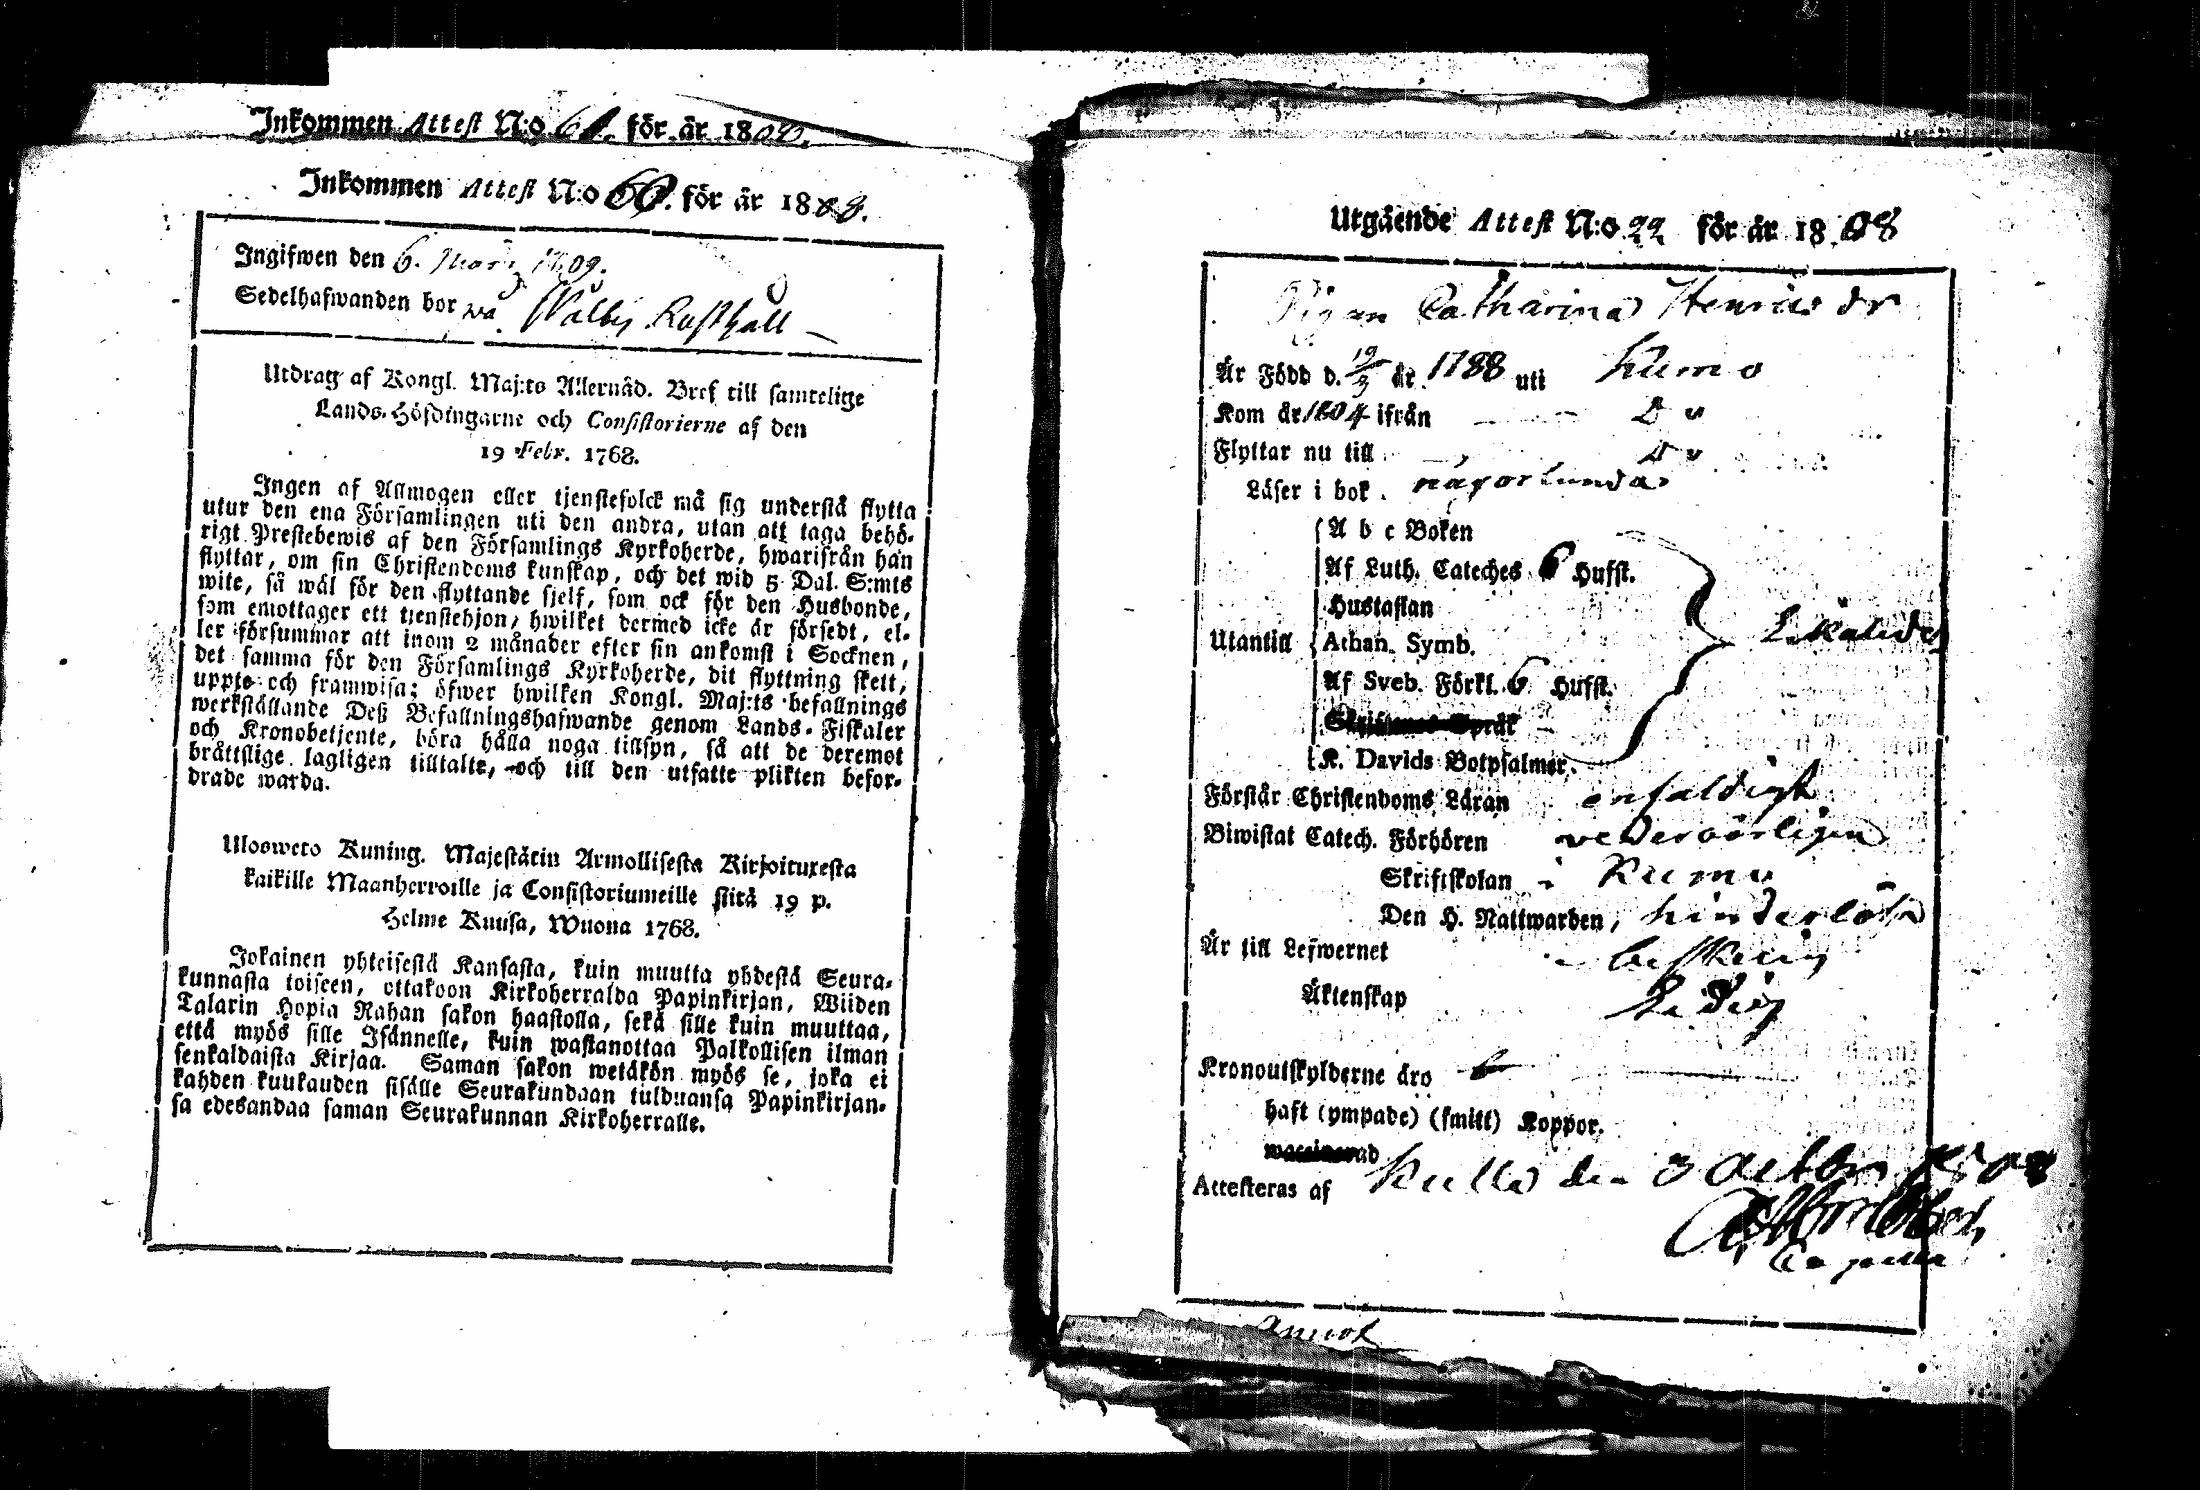 Inkommen Attest N:o 61. för år 1808.
Inkommen Attest N:o 60. för år 1808.
Ingifwen den 6. Mars 1809.
Sedelhafwanden bor wa Walby Rusthåll
Utdrag af Kongl. Maj:ts Allernåd. Bref till samtelige
Lands-Höfdingarne och Consistorierne af den
19 Febr. 1768.
Ingen af Allmogen eller tjenstefolck må sig understå flytta
utur den ena Församlingen uti den andra, utan att taga behö-
rigt Prestebewis af den Församlings Kyrkoherde, hwarifrån han
flyttar, om sin Christendoms kunskap, och det wid 5 Dal. S:mts
wite, så wäl för den flyttande sjelf, som ock för den Husbonde,
som emottager ett tjenstehjon, hwilket dermed icke är försedt, el-
ler försummar att inom 2 månader efter sin ankomst i Socknen,
det samma för den Församlings Kyrkoherde, dit flyttning skett,
uppte och framwisa; öfwer hwilken Kongl. Maj:ts befallnings
werkställande Deß Befallningshafwande genom Lands-Fiskaler
och Kronobetjente, böra hålla noga tillsyn, så att de deremot
bråttslige lagligen tilltalte, och till den utsatte plikten befor-
drade warda.
Ulosweto Kuning. Majestätin Armollisesta Kirjoituxesta
kaikille Maanherroille ja Consistoriumeille siitä 19 p.
Helme Kuusa, Wuona 1768.
Jokainen yhteisestä Kansasta, kuin muutta yhdestä Seura-
kunnasta toiseen, ottakoon Kirkoherralda Papinkirjan, Wiiden
Talarin Hopia Rahan sakon haastolla, sekä sille kuin muuttaa,
että myös sille Isännelle, kuin wastanottaa Palkollisen ilman
senkaldaista Kirjaa. Saman sakon wetäkön myös se, joka ei
kahden kuukauden sisälle Seurakundaan tulduansa Papinkirjan-
sa edesandaa saman Seurakunnan Kirkoherralle.
Utgående Attest N:o 22 för år 1808
Pigan Catharina Henrics dr
Är Född d. 19/3 år 1788 uti Kumo
Kom år 1804 ifrån Do
Flyttar nu till Do
Läser i bok någorlunda
A b c Boken
Af Luth. Cateches 6 Hufst.
Hustaflan
Utantill Athan. Symb.
Af Sveb. Förkl. 6 Hufst.
Skriftenes Språk
K. Davids Botpsalmer.
Förstår Christendoms Läran enfaldigt
Biwistat Catech. Förhören vederbörligen
Skriftskolan i Kumo
Den H. Nattwarden, hinderlös
Är till Lefwernet beskedlig
Äktenskap Ledig
Kronoutskylderne äro
haft (ympade) (smitt) Koppor.
waccinerad
Attesteras af Kulla den 3 octobr 1808
Capellan